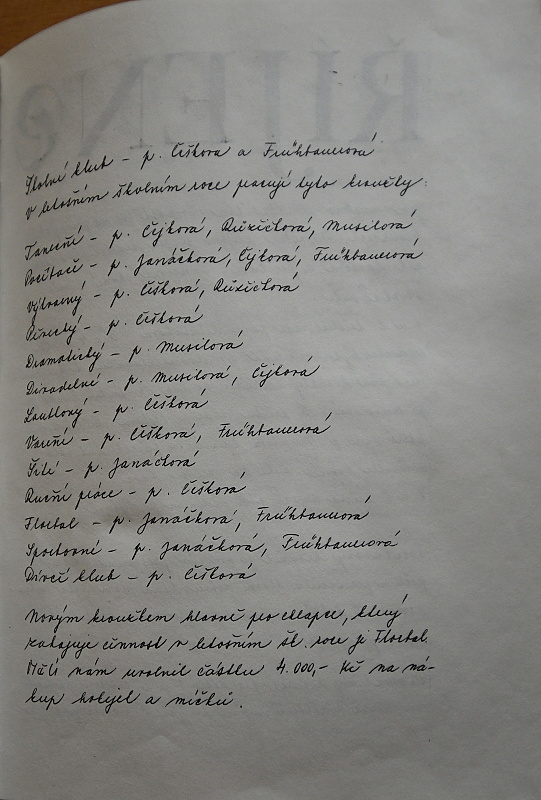 ŘÍJEN
Školní klub – p. Číšková a Frühbauerová
V letošním školním roce pracují tyto kroužky:
Taneční – p. Čejková, Růžičková, Musilová
Počítače – p. Janáčková, Čejková, Frühbauerová
Výtvarný – p. Číšková, Růžičková
Pěvecký – p. Číšková
Dramatický – p. Musilová
Divadelní – p. Musilová, Čejková
Loutkový – p. Číšková
Vaření – p. Číšková, Frühbauerová
Šití – p. Janáčková
Ruční práce – p. Číšková
Florbal – p. Janáčková, Frühbauerová
Sportovní – p. Janáčková, Frühbauerová
Dívčí klub – p. Číšková
Novým kroužkem hlavně pro chlapce, který
zahajuje činnost v letošním šk. roce je Florbal.
MěÚ nám uvolnil částku 4.000,- Kč na ná-
kup hokejek a míčků.